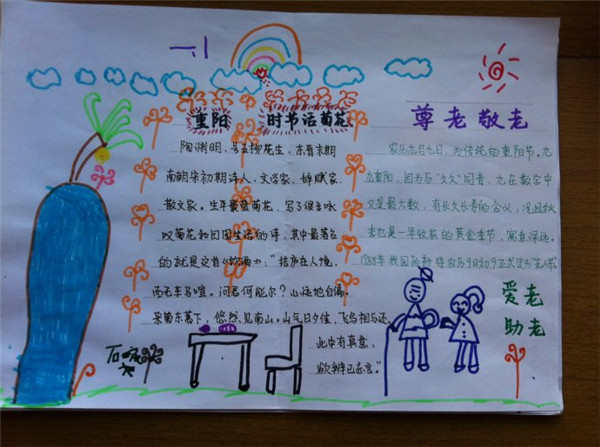 一.1
重阳 时节话菊花
陶渊明，号五柳先生，东晋末期
南朝宋初期诗人、文学家、辞赋家、
散文家。生平最爱菊花，写了很多咏
叹菊花和田园生活的诗，其中最著名
的就是这首《饮酒》：“结庐在人境，
而无车马喧。问君何能尔？心远地自偏。
采菊东篱下，悠然见南山。山气日夕佳，飞鸟相与还
此中有真意，
欲辨已忘言。”
尊老敬老
农历九月九日，为传统的重阳节。
重阳，因为与“久久”同音，九在数字中
又是最大数，有长久长寿的含义，况且秋
季也是一年收获的黄金季节，寓意深远。
1989年我国政府将农历9月初9正式定为
爱老
助老